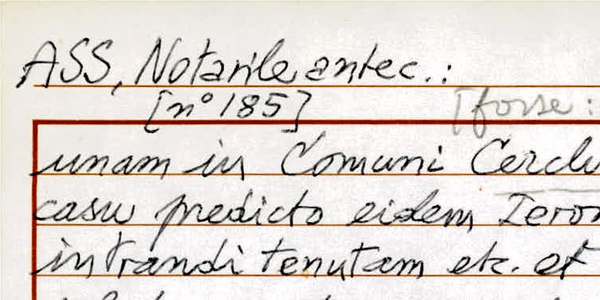 ASS, Notarile antec.:
[n° 185] [forse:
unam in Comuni
casu predicto eidem
intrandi tenutam etc. et